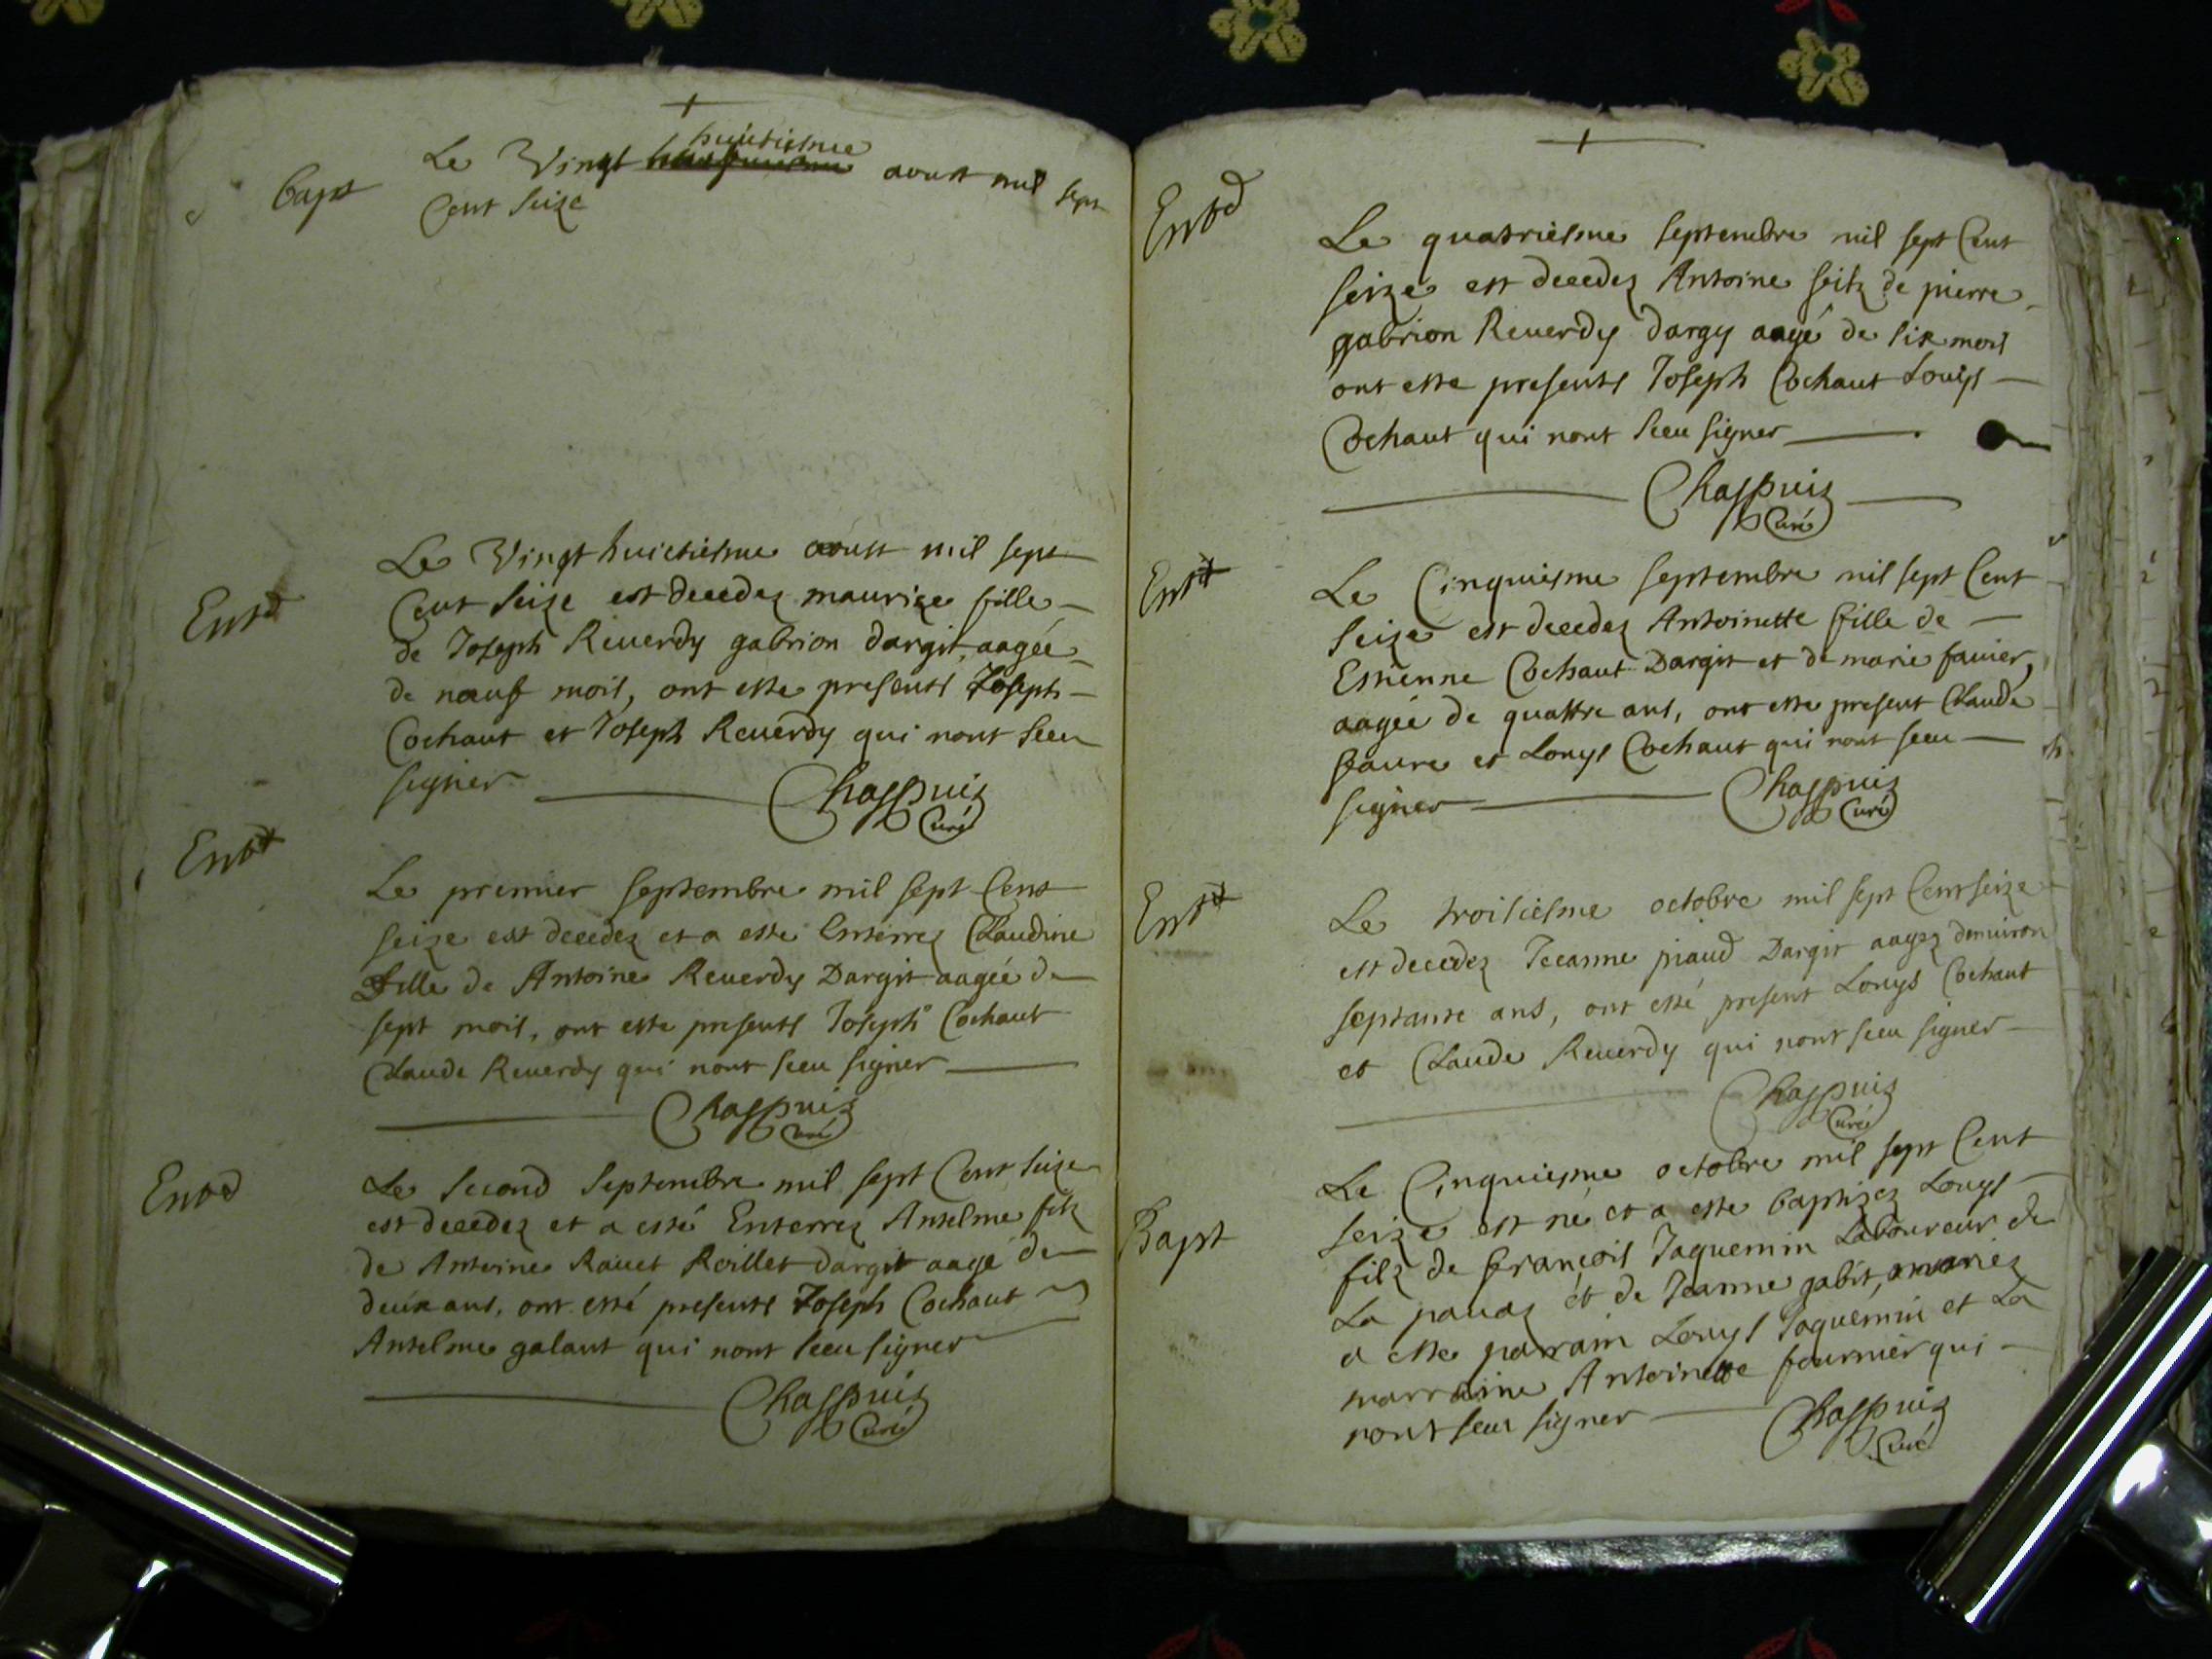 Bapt
Le Vingt huictiesme aoust mil sept
Cent seize
Entt
Le Vingt huictiesme aoust mil sept
Cent seize est decedez maurize fille
de Joseph Reuerdy gabrion dargit, aagée
de nœuf mois, ont este presents Joseph
Cochaut et Joseph Reuerdy qui nont sceu
signer
Chappuiz
Curé
Entt
Le premier septembre mil sept Cent
seize est decedez et a este Enterrez Claudine
fille de Antoine Reuerdy Dargit aagée de
sept mois, ont este presents Joseph Cochaut
Claude Reuerdy qui nont sceu signer
Chappuiz
Curé
Entt
Le second septembre mil sept Cent seize
est decedez et a esté Enterrez Anselme filz
de Antoine Rauet Roillet dargit aagé de
deux ans, ont esté presents Joseph Cochaut
Anselme galant qui nont sceu signer
Chappuiz
Curé
Entt
Le quatriesme septembre mil sept Cent
seize est decedez Antoine feilz de pierre
gabrion Reuerdy dargy aagé de six mois
ont este presents Joseph Cochaut Louys
Cochaut qui nont sceu signer
Chappuiz
Curé
Entt
Le Cinquiesme septembre mil sept Cent
seize est decedez Antoinette fille de
Estienne Cochaut Dargit et de marie fauier,
aagée de quattre ans, ont este present Claude
faure et Louys Cochaut qui nont sceu
signer
Chappuiz
Curé
Entt
Le troisiesme octobre mil sept Cent seize
est decedez Jeeanne piaud Dargit aagez denuiron
septante ans, ont esté present Louys Cochaut
et Claude Reuerdy qui nont sceu signer
Chappuiz
Curé
Bapt
Le Cinquiesme octobre mil sept Cent
seize est né et a este baptizez Louys
filz de françois Jaquemin Laboureur de
La pauaz et de Jeanne gabit, mariez
a este parrain Louys Jaquemin et La
marraine Antoinette fournier qui
nont sceu signer
Chappuiz
Curé